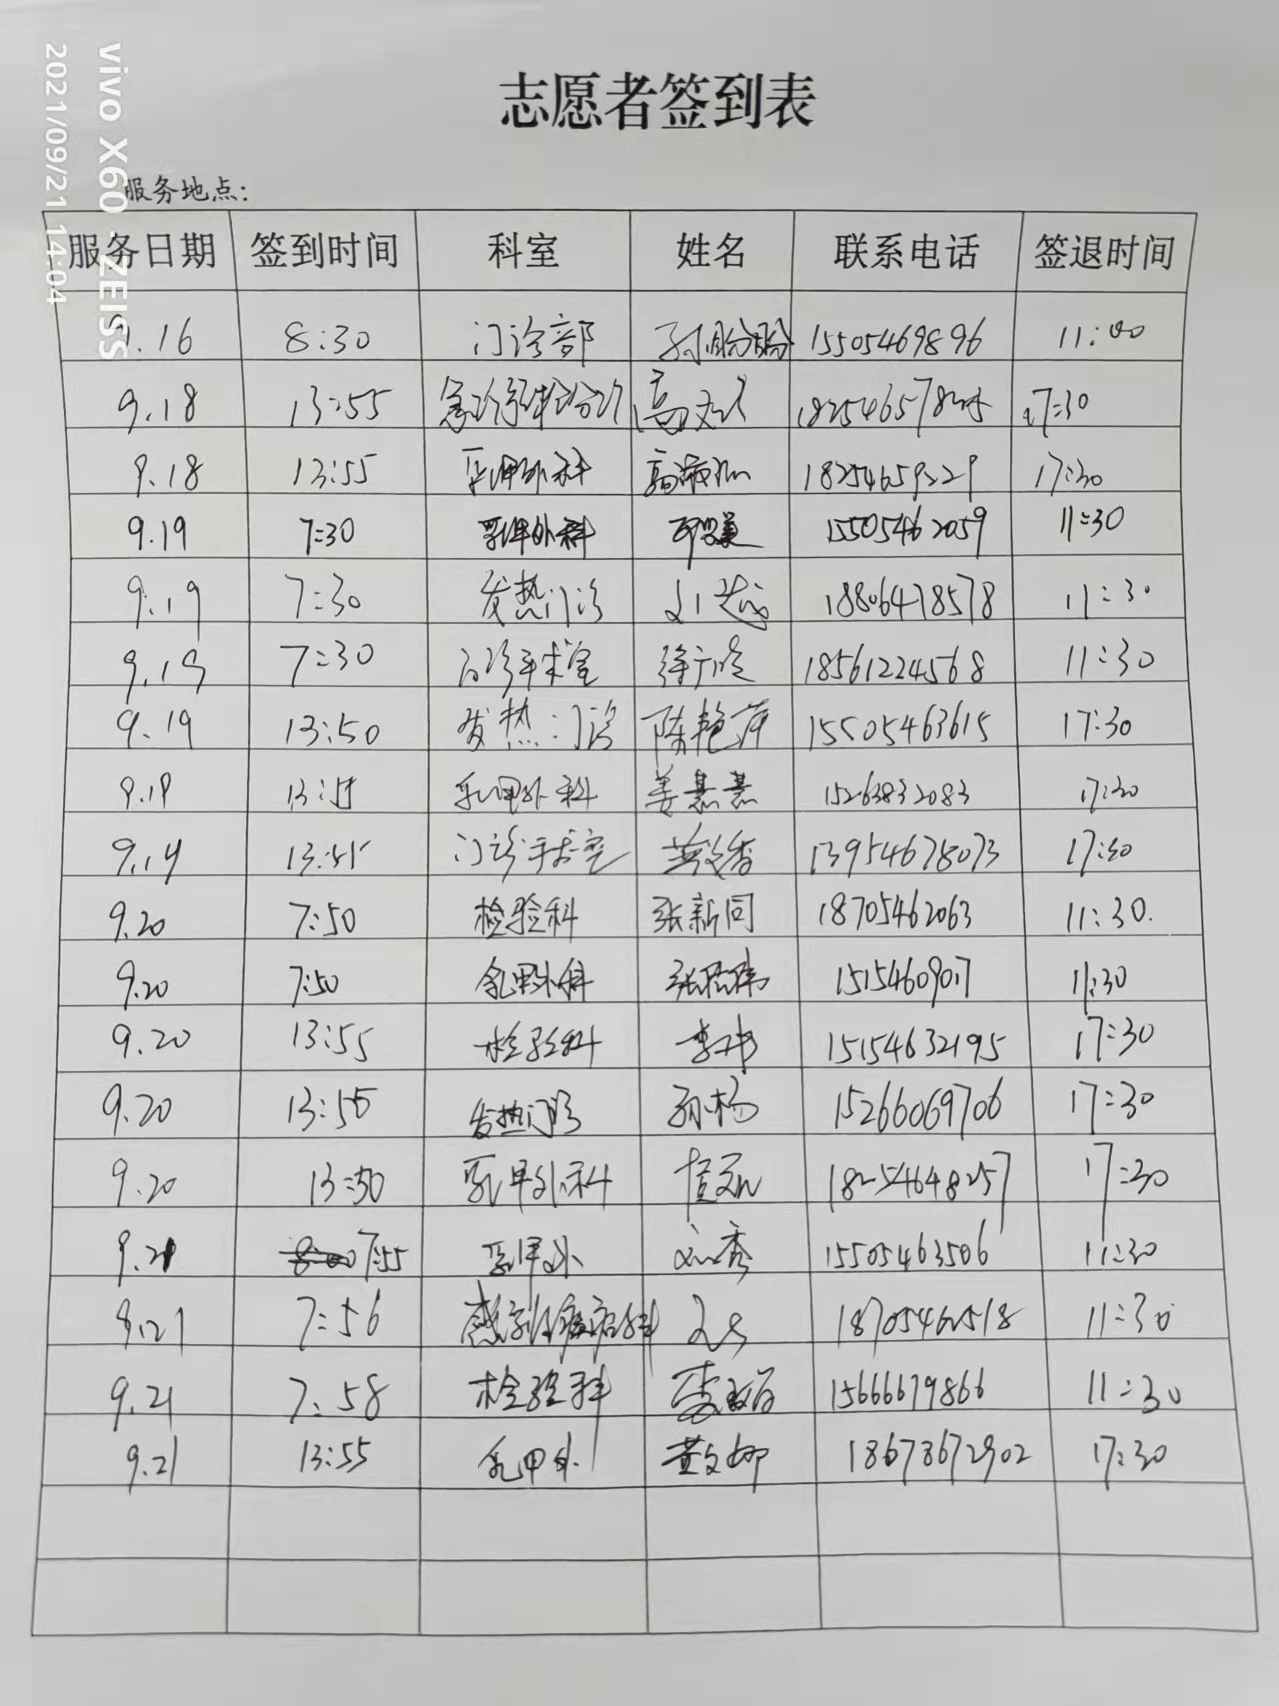 vivo X60 · ZEISS
2021/09/21 14:04
志愿者签到表
服务地点：
服务日期 签到时间 科室 姓名 联系电话 签退时间
9.16 8:30 门诊部 孙盼盼 15505469896 11:00
9.18 13:55 高 17:30
9.18 13:55 乳甲外科 高 18254659229 17:30
9.19 7:30 乳甲外科 15505462059 11:30
9.19 7:30 发热门诊 18806478578 11:30
9.19 7:30 门诊手术室 徐 18561224568 11:30
9.19 13:50 发热门诊 陈艳萍 15505463615 17:30
9.19 乳甲外科 姜慧慧 15263832083 17:30
9.19 门诊手术室 13954678073 17:30
9.20 7:50 检验科 张新同 18705462063 11:30.
9.20 7:50 乳甲外科 11:30
9.20 13:55 检验科 李 15154632195 17:30
9.20 13:55 发热门诊 孙杨 15266069706 17:30
9.20 13:50 乳甲外科 18254648257 17:30
9.21 7:55 乳甲外 刘秀 15505463506 11:30
9.21 7:56 18705462518 11:30
9.21 7:58 检验科 李 15666679866 11:30
9.21 13:55 乳甲外 黄文娜 18678672902 17:30